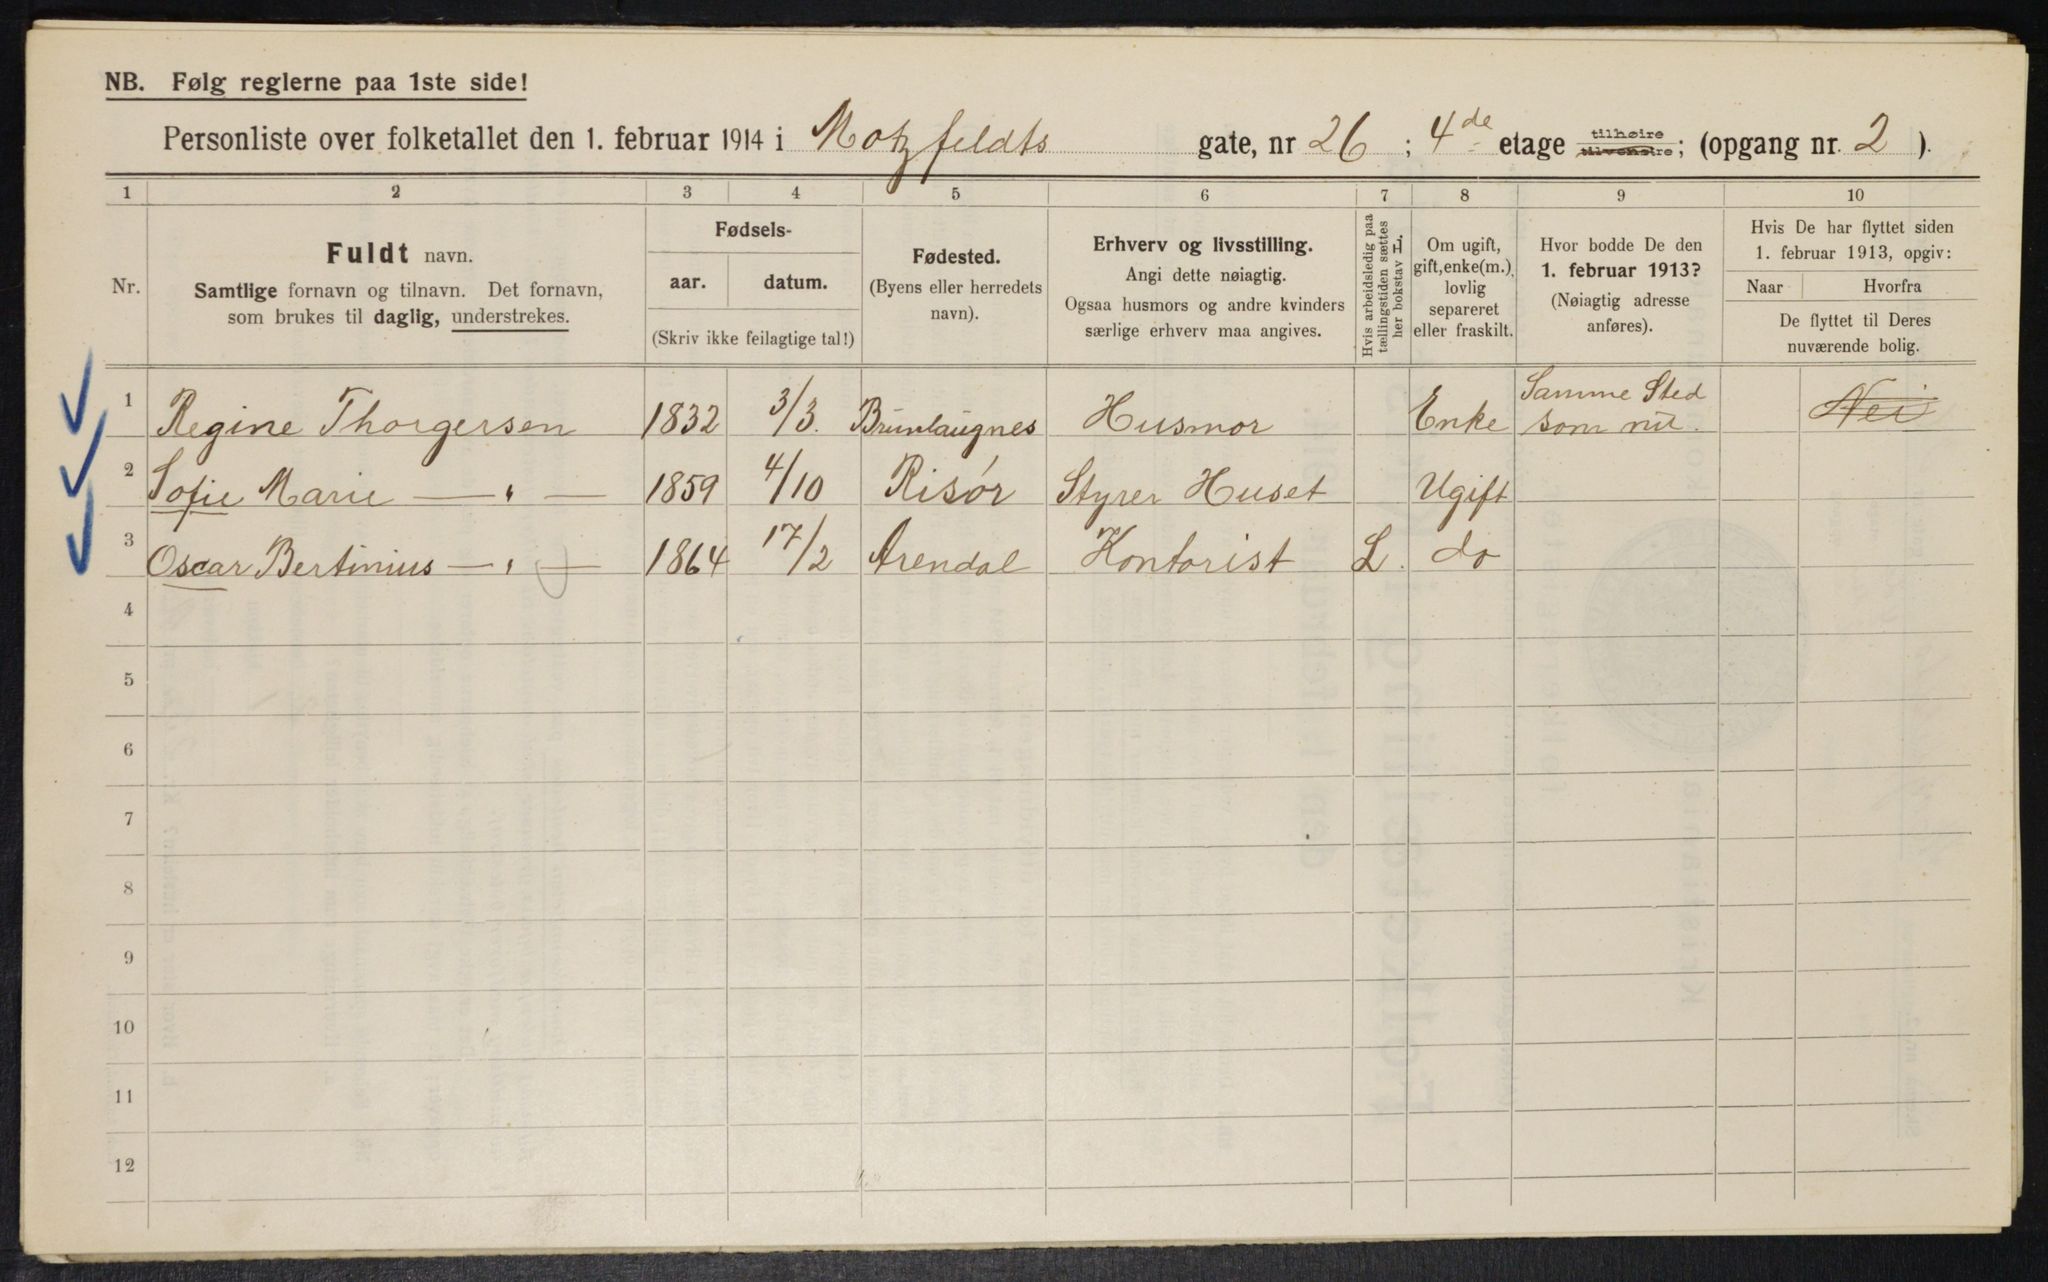 NB. Følg reglerne paa 1ste side!
Personliste over folketallet den 1. februar 1914 i Motzfeldts gate, nr 26 ; 4de etage tilhøire tilvenstre; (opgang nr. 2 ).
1 2 3 4 5 6 7 8 9 10
Nr.
Fuldt navn.
Samtlige fornavn og tilnavn. Det fornavn,
som brukes til daglig, understrekes.
Fødsels-
aar. datum.
(Skriv ikke feilagtige tal!)
Fødested.
(Byens eller herredets
navn).
Erhverv og livsstilling.
Angi dette nøiagtig.
Ogsaa husmors og andre kvinders
særlige erhverv maa angives.
Hvis arbeidsledig paa
tællingstiden sættes
her bokstav L.
Om ugift,
gift, enke(m.),
lovlig
separeret
eller fraskilt.
Hvor bodde De den
1. februar 1913?
(Nøiagtig adresse
anføres).
Hvis De har flyttet siden
1. februar 1913, opgiv:
Naar Hvorfra
De flyttet til Deres
nuværende bolig.
1 Regine Thorgersen 1832 3/3. Brunlaugnes Husmor Enke Samme Sted
som nu. Nei
2 Sofie Marie — " — 1859 4/10 Risør Styrer Huset Ugift
3 Oscar Bertinius — " — 1864 17/2 Arendal Kontorist L. do
4
5
6
7
8
9
10
11
12